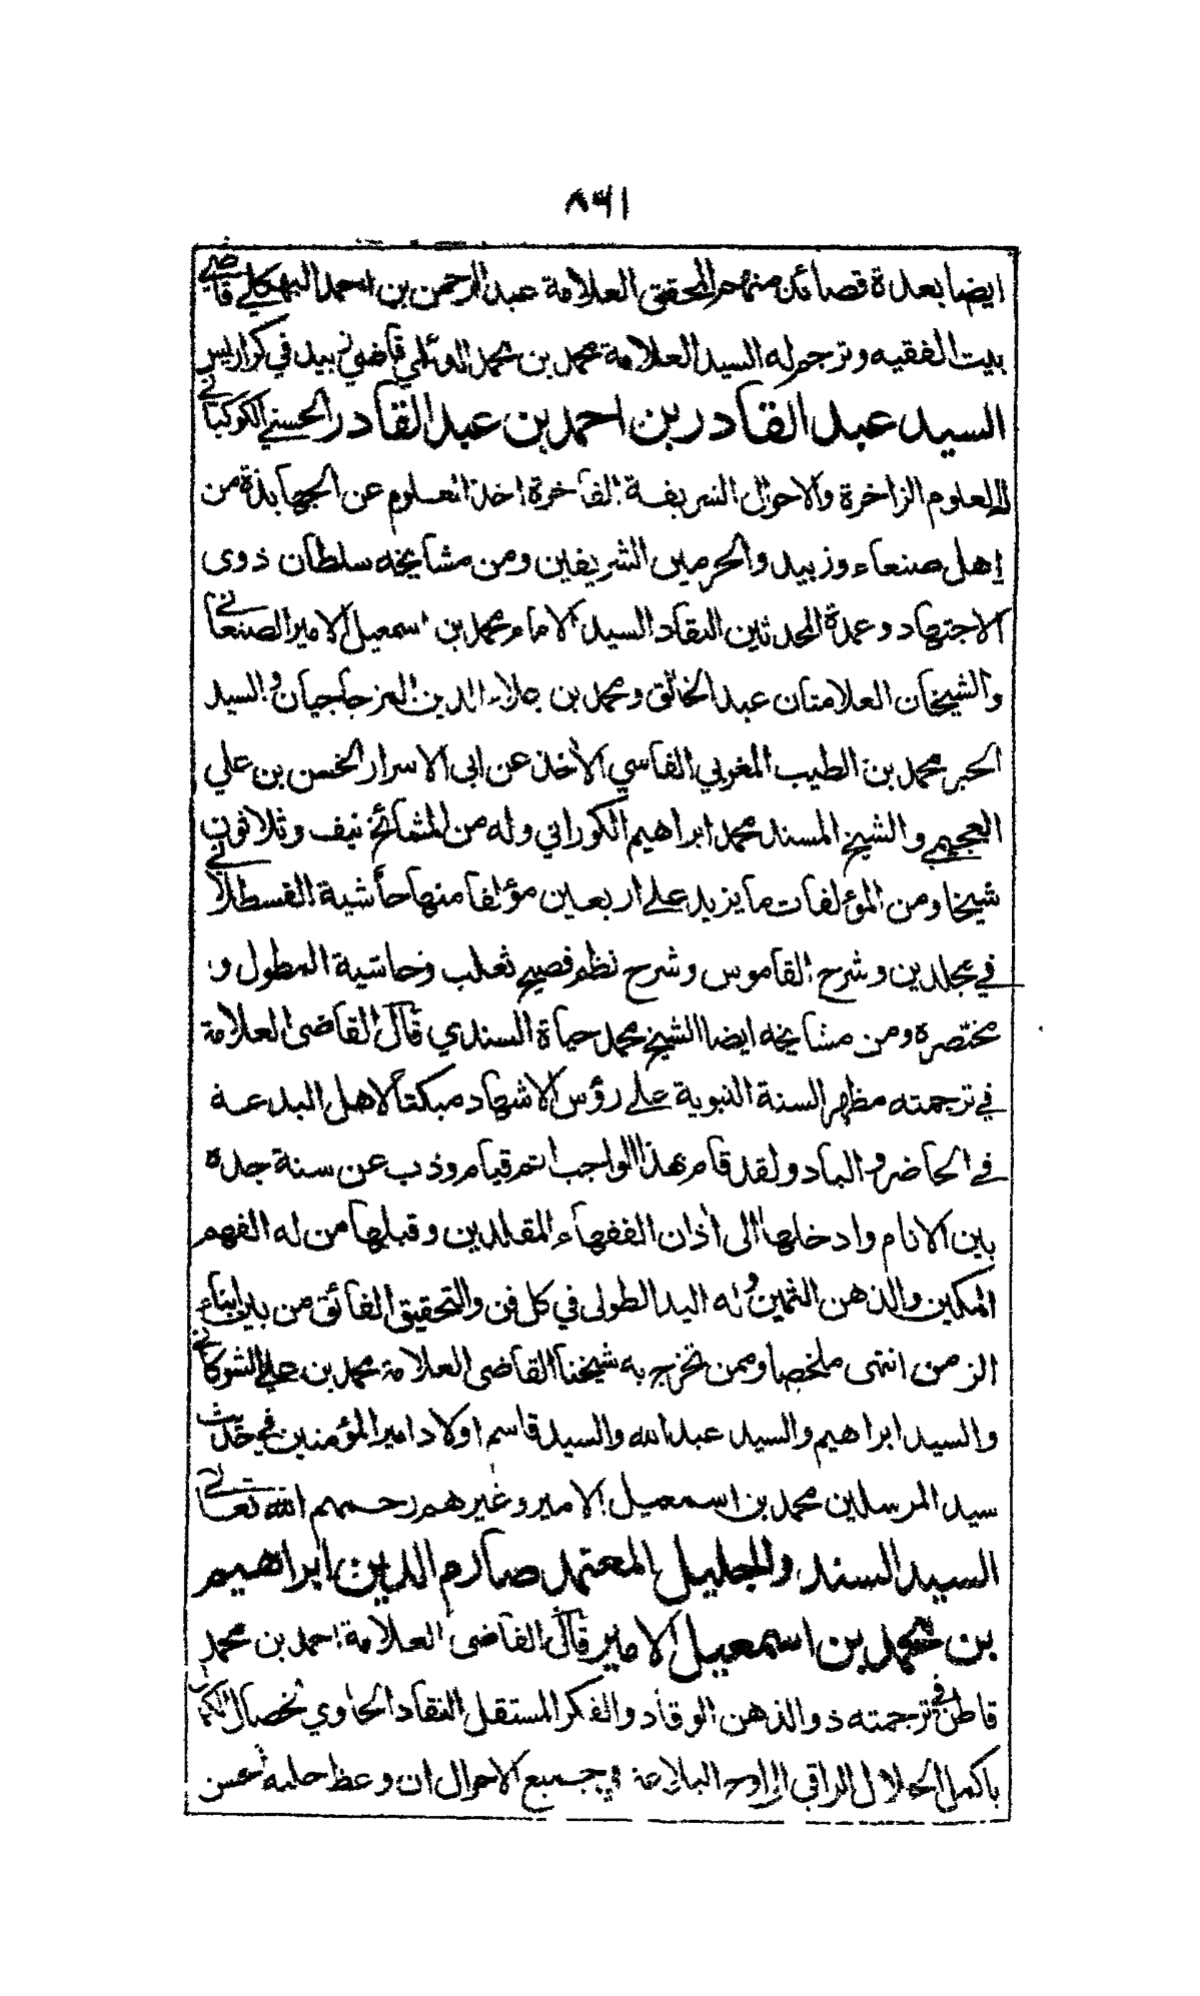 ٨٦١
ايضا بعدة قصائد منهم المحقق العلامة عبد الرحمن بن احمد البهكلي قاضي
بيت الفقيه وترجم له السيد العلامة محمد بن محمد الديلمي قاضي زبيد في كراريس
السيد عبد القادر بن احمد بن عبد القادر الحسني الكوكباني
له العلوم الزاخرة والاحوال الشريفة الفاخرة اخذ العلوم عن الجهابذة من
اهل صنعاء وزبيد والحرمين الشريفين ومن مشايخه سلطان ذوى
الاجتهاد وعمدة المحدثين النقاد السيد الامام محمد بن اسمعيل الامير الصنعاني
والشيخان العلامتان عبد الخالق ومحمد بن علاء الدين المزجاجيان والسيد
الحبر محمد بن الطيب المغربي الفاسي الأخذ عن ابى الاسرار الحسن بن علي
العجيمي والشيخ المسند محمد ابراهيم الكوراني وله من المشائخ نيف وثلاثون
شيخا ومن المؤلفات ما يزيد على اربعين مؤلفا منها حاشية القسطلاني
في مجلدين وشرح القاموس وشرح نظم فصيح ثعلب وحاشية المطول و
مختصره ومن مشايخه ايضا الشيخ محمد حياة السندي قال القاضى العلامة
في ترجمته مظهر السنة النبوية على رؤس الاشهاد مبكتاً لاهل البدعة
في الحاضر والباد ولقد قام بهذا الواجب اتم قيام وذب عن سنة جده
بين الانام وادخلها الى أذان الفقهاء المقلدين وقبلها من له الفهم
المكين والذهن الثمين وله اليد الطولى في كل فن والتحقيق الفائق من بين ابناء
الزمن انتهى ملخصا وممن تخرج به شيخنا القاضى العلامة محمد بن علي الشوكاني
والسيد ابراهيم والسيد عبد الله والسيد قاسم اولاد امير المؤمنين في حديث
سيد المرسلين محمد بن اسمعيل الامير وغيرهم رحمهم الله تعالى
السيد السند والجليل المعتمد صارم الدين ابراهيم
بن محمد بن اسمعيل الامير قال القاضى العلامة احمد بن محمد
قاطن في ترجمته ذو الذهن الوقاد والفكر المستقل النقاد الحاوي لخصال الكمال
باكمل الخلال الراقي البلاغة في جميع الاحوال ان وعظ